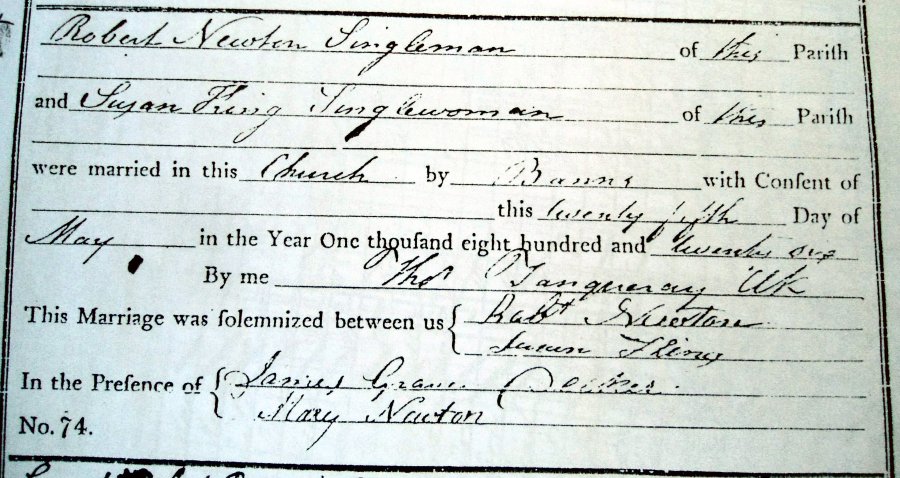 Robert Newton Singleman of this Pariſh
and Susan Fling Singlewoman of this Pariſh
were married in this Church by Banns with Conſent of
this twenty fifth Day of
May in the Year One thouſand eight hundred and twenty six
By me Thos Tanqueray
This Marriage was ſolemnized between us Robt Newton
Susan Fling
In the Preſence of James
Mary Newton
No. 74.